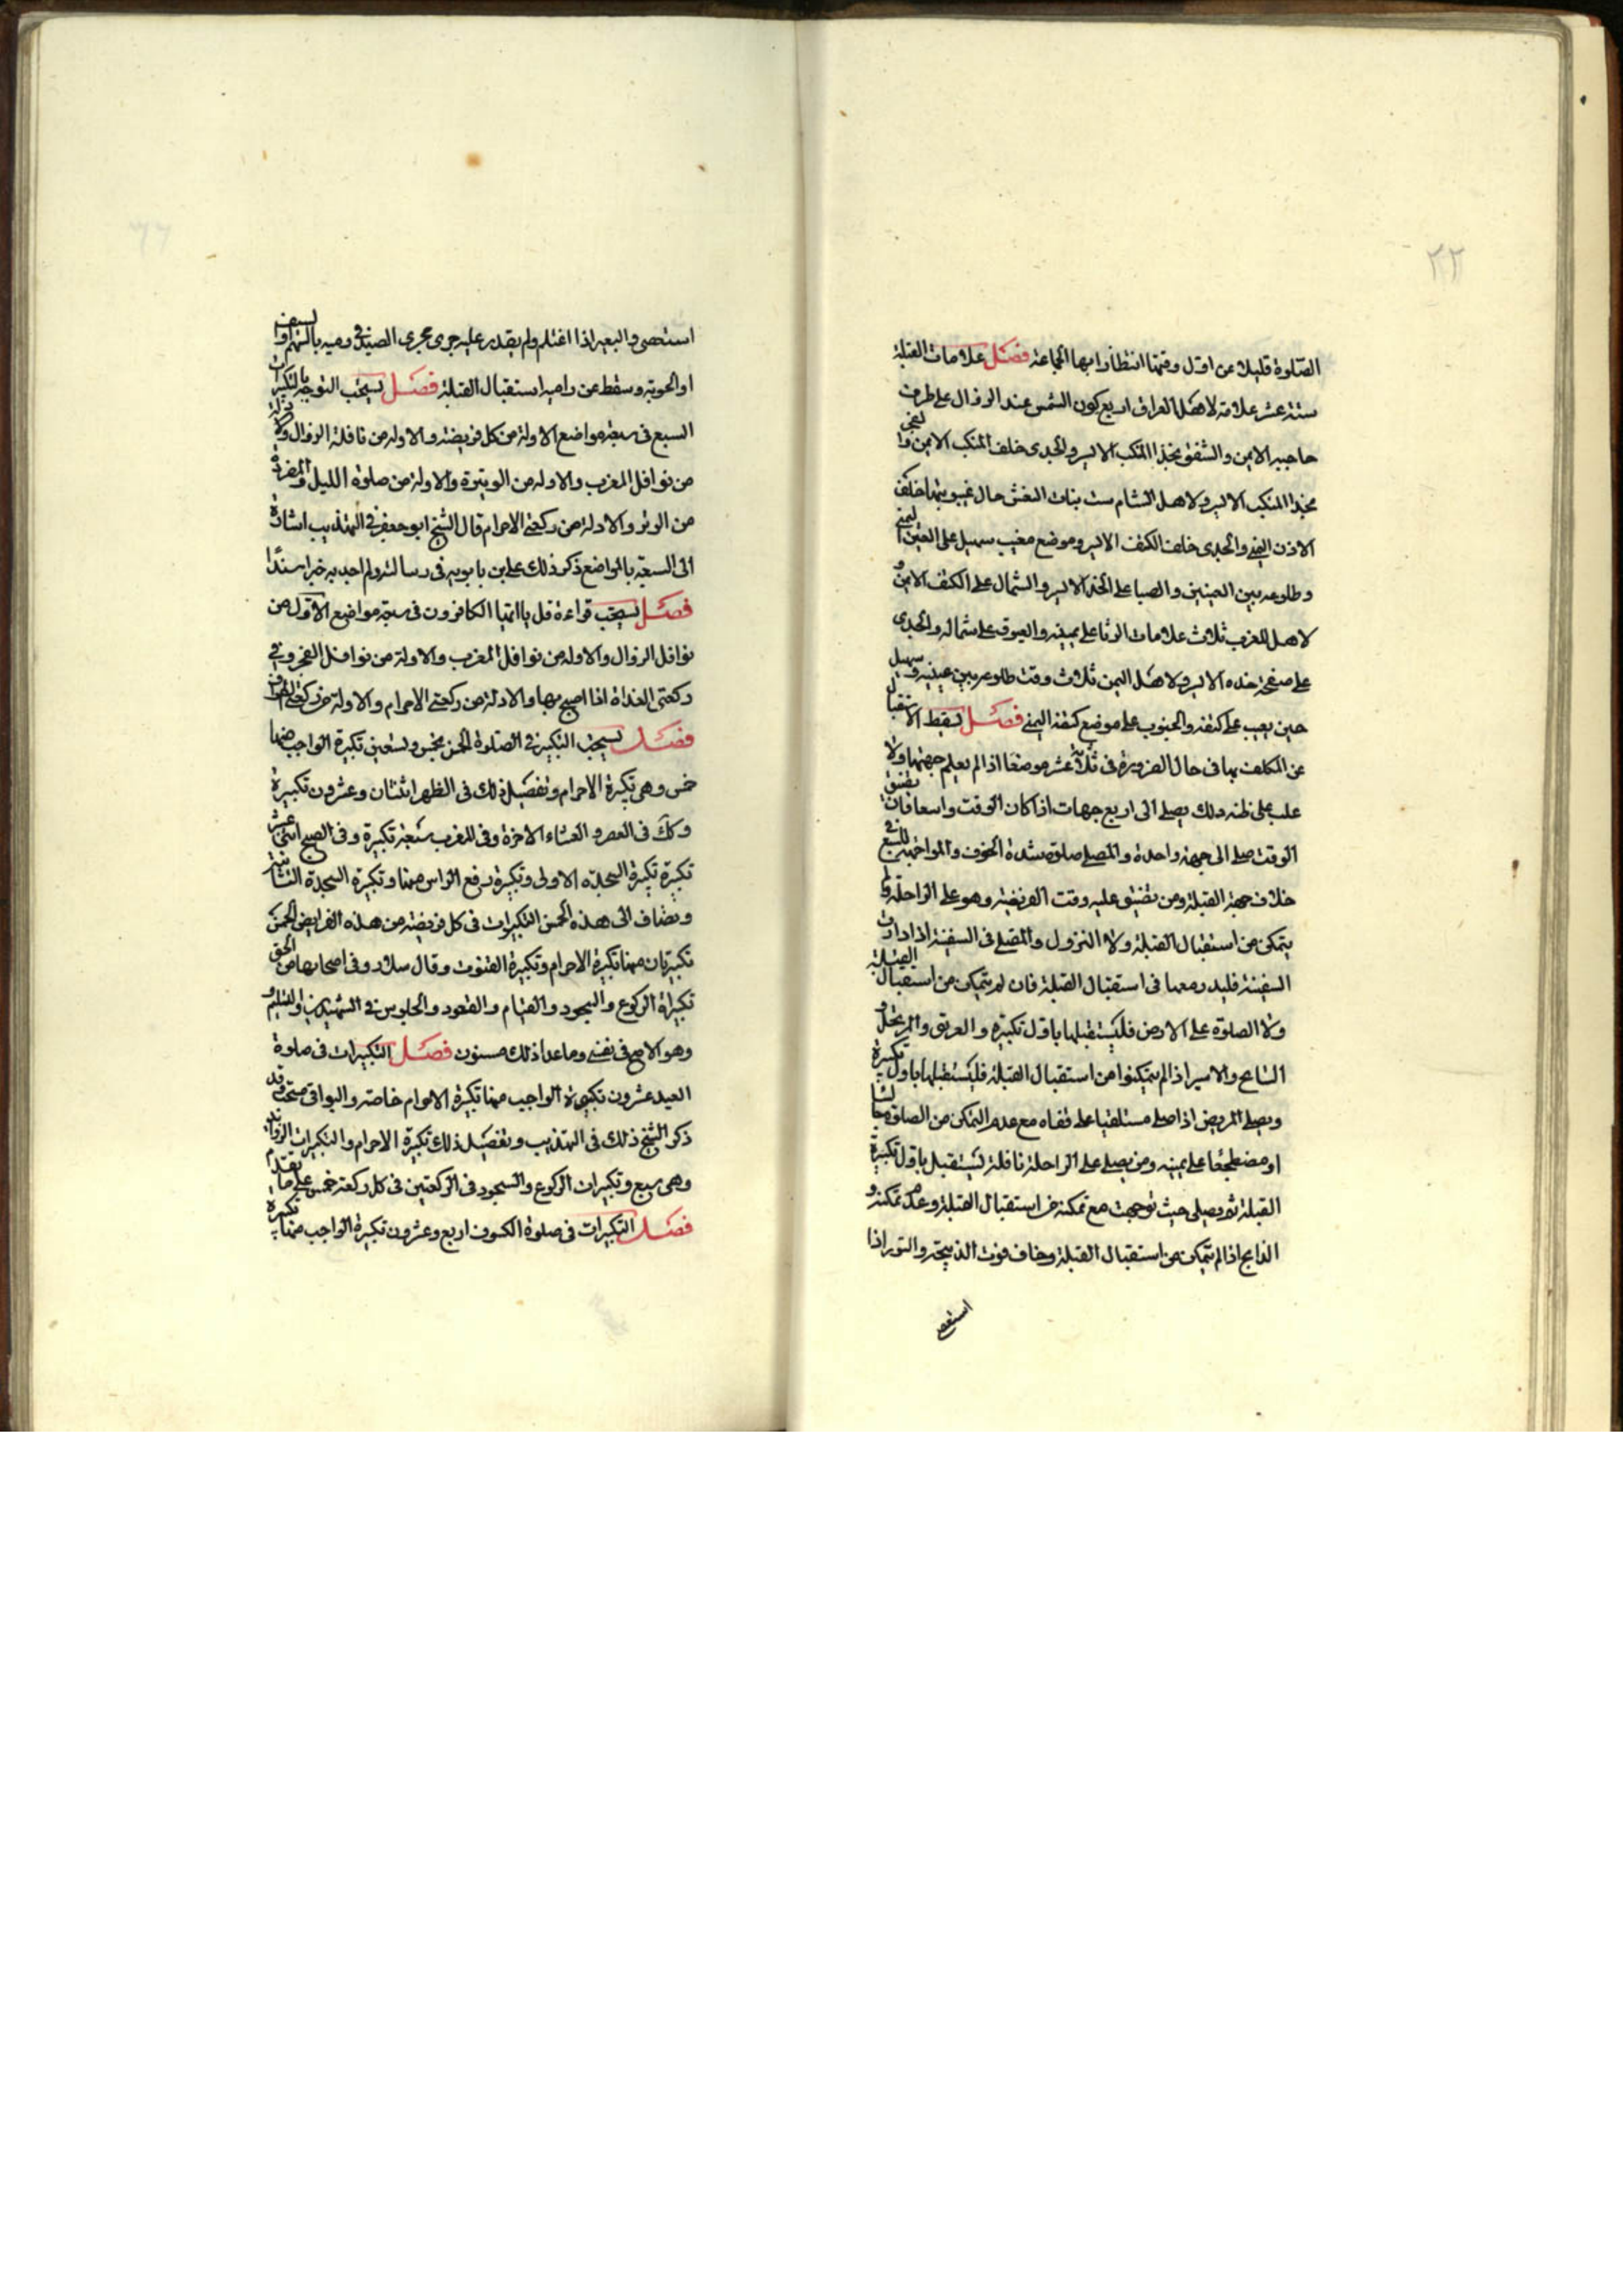 ٢٢
الصّلوة قليلا عن اوّل وقتها انتظارا بها الجماعة فصل علامات القبلة
ستة عشر علامة لاهل العراق اربع كون الشمس عند الزوال على طرف
حاجبه الايمن والشفق بحذا المنكب الايسر والجدى خلف المنكب الايمن والفجر
بحذا المنكب الايسر ولاهل الشام ست بنات النعش حال غيبوبتها خلف
الاذن اليمنى والجدى خلف الكتف الايسر وموضع مغيب سهيل على العين اليمنى
وطلوعه بين العينين والصبا على الخد الايسر والشمال على الكتف الايمن و
لاهل المغرب ثلاث علامات الثريا على يمينه والعيوق على شماله والجدى
على صفحة خده الايسر ولاهل اليمن ثلاث وقت طلوعه بين عينيه وسهيل
حين يغيب على كتفه والجنوب على موضع كتفه اليمنى فصل يسقط الاستقبال
عن المكلف بها فى حال الضرورة فى ثلاثة عشر موضعا اذا لم يعلم جهتها ولا
غلب على ظنه ذلك يصلى الى اربع جهات اذا كان الوقت واسعا فان تضيق
الوقت صلى الى جهة واحدة والمصلى صلوة شدة الخوف والمواجه للسبع فى
خلاف جهة القبلة ومن تضيق عليه وقت الفريضة وهو على الراحلة ولم
يتمكن من استقبال القبلة ولا النزول والمصلى فى السفينة اذا دارت
السفينة فليدر معها فى استقبال القبلة فان لم يتمكن من استقبال القبلة
ولا الصلوة على الارض فليستقبلها باول تكبيرة والغريق والمرتحل و
السّابح والاسير اذا لم يتمكنوا من استقبال القبلة فليستقبلها باول تكبيرة
ويصلى المريض اذا صلى مستلقيا على قفاه مع عدم التمكن من الصلوة جالسا
او مضطجعا على يمينه ومن يصلى على الراحلة نافلة ليستقبل باوّل تكبيرة
القبلة ثم يصلى حيث توجهت مع تمكنه من استقبال القبلة وعدم تمكنه و
الذابح اذا لم يتمكن من استقبال القبلة وخاف فوت الذبيحة والثور اذا
استعصى
استعصى والبعير اذا اغتلم ولم يقدر عليه جرى مجرى الصيد فى رميه بالسهم او السيف
او الحربة وسقط عن راميه استقبال القبلة فصل يستحب التوجه بالتكبيرات
السبع فى سبعة مواضع الاولة من كل فريضة والاولة من نافلة الزوال والاولة
من نوافل المغرب والاولة من الوتيرة والاولة من صلوة الليل والمفردة
من الوتر والاولة من ركعتى الاحرام قال الشيخ ابو جعفر فى التهذيب اشارة
الى السبعة بالمواضع ذكر ذلك على بن بابويه فى رسالته ولم اجد به خبرا مسندًا
فصل يستحب قراءة قل يا ايها الكافرون فى سبعة مواضع الاوّل من
نوافل الزوال والاولة من نوافل المغرب والاولة من نوافل الفجر وفى
ركعتى الغداة اذا اصبح بها والاولة من ركعتى الاحرام والاولة من ركعتى الطواف
فصل يستحب التكبير فى الصّلوة الخمس بخمس وتسعين تكبيرة الواجب منها
خمس وهى تكبيرة الاحرام وتفصيل ذلك فى الظهر اثنتان وعشرون تكبيرة
وكك فى العصر والعشاء الاخرة وفى المغرب سبعة تكبيرة وفى الصبح اثنتى عشر
تكبيرة تكبيرة السجدة الاولى وتكبيرة برفع الراس منها وتكبيرة السجدة الثانية
ويضاف الى هذه الخمس التكبيرات فى كل فريضة من هذه الفرايض الخمس
تكبيرتان منها تكبيرة الاحرام وتكبيرة القنوت وقال سلار وفى اصحابنا من الحق
تكبيرة الركوع والسجود والقيام والقعود والجلوس فى التشهدين والتسليم و
وهو الاصح فى نفسى وما عدا ذلك مسنون فصل التكبيرات فى صلوة
العيد عشرون تكبيرة الواجب منها تكبيرة الاحرام خاصة والبواقى مستحب وقد
ذكر الشيخ ذلك فى التهذيب وتفصيل ذلك تكبيرة الاحرام والتكبيرات الزوائد
وهى سبع وتكبيرات الركوع والسجود فى الركعتين فى كل ركعة خمس على ما تقدم
فصل التكبيرات فى صلوة الكسوف اربع وعشرون تكبيرة الواجب منها تكبيرة